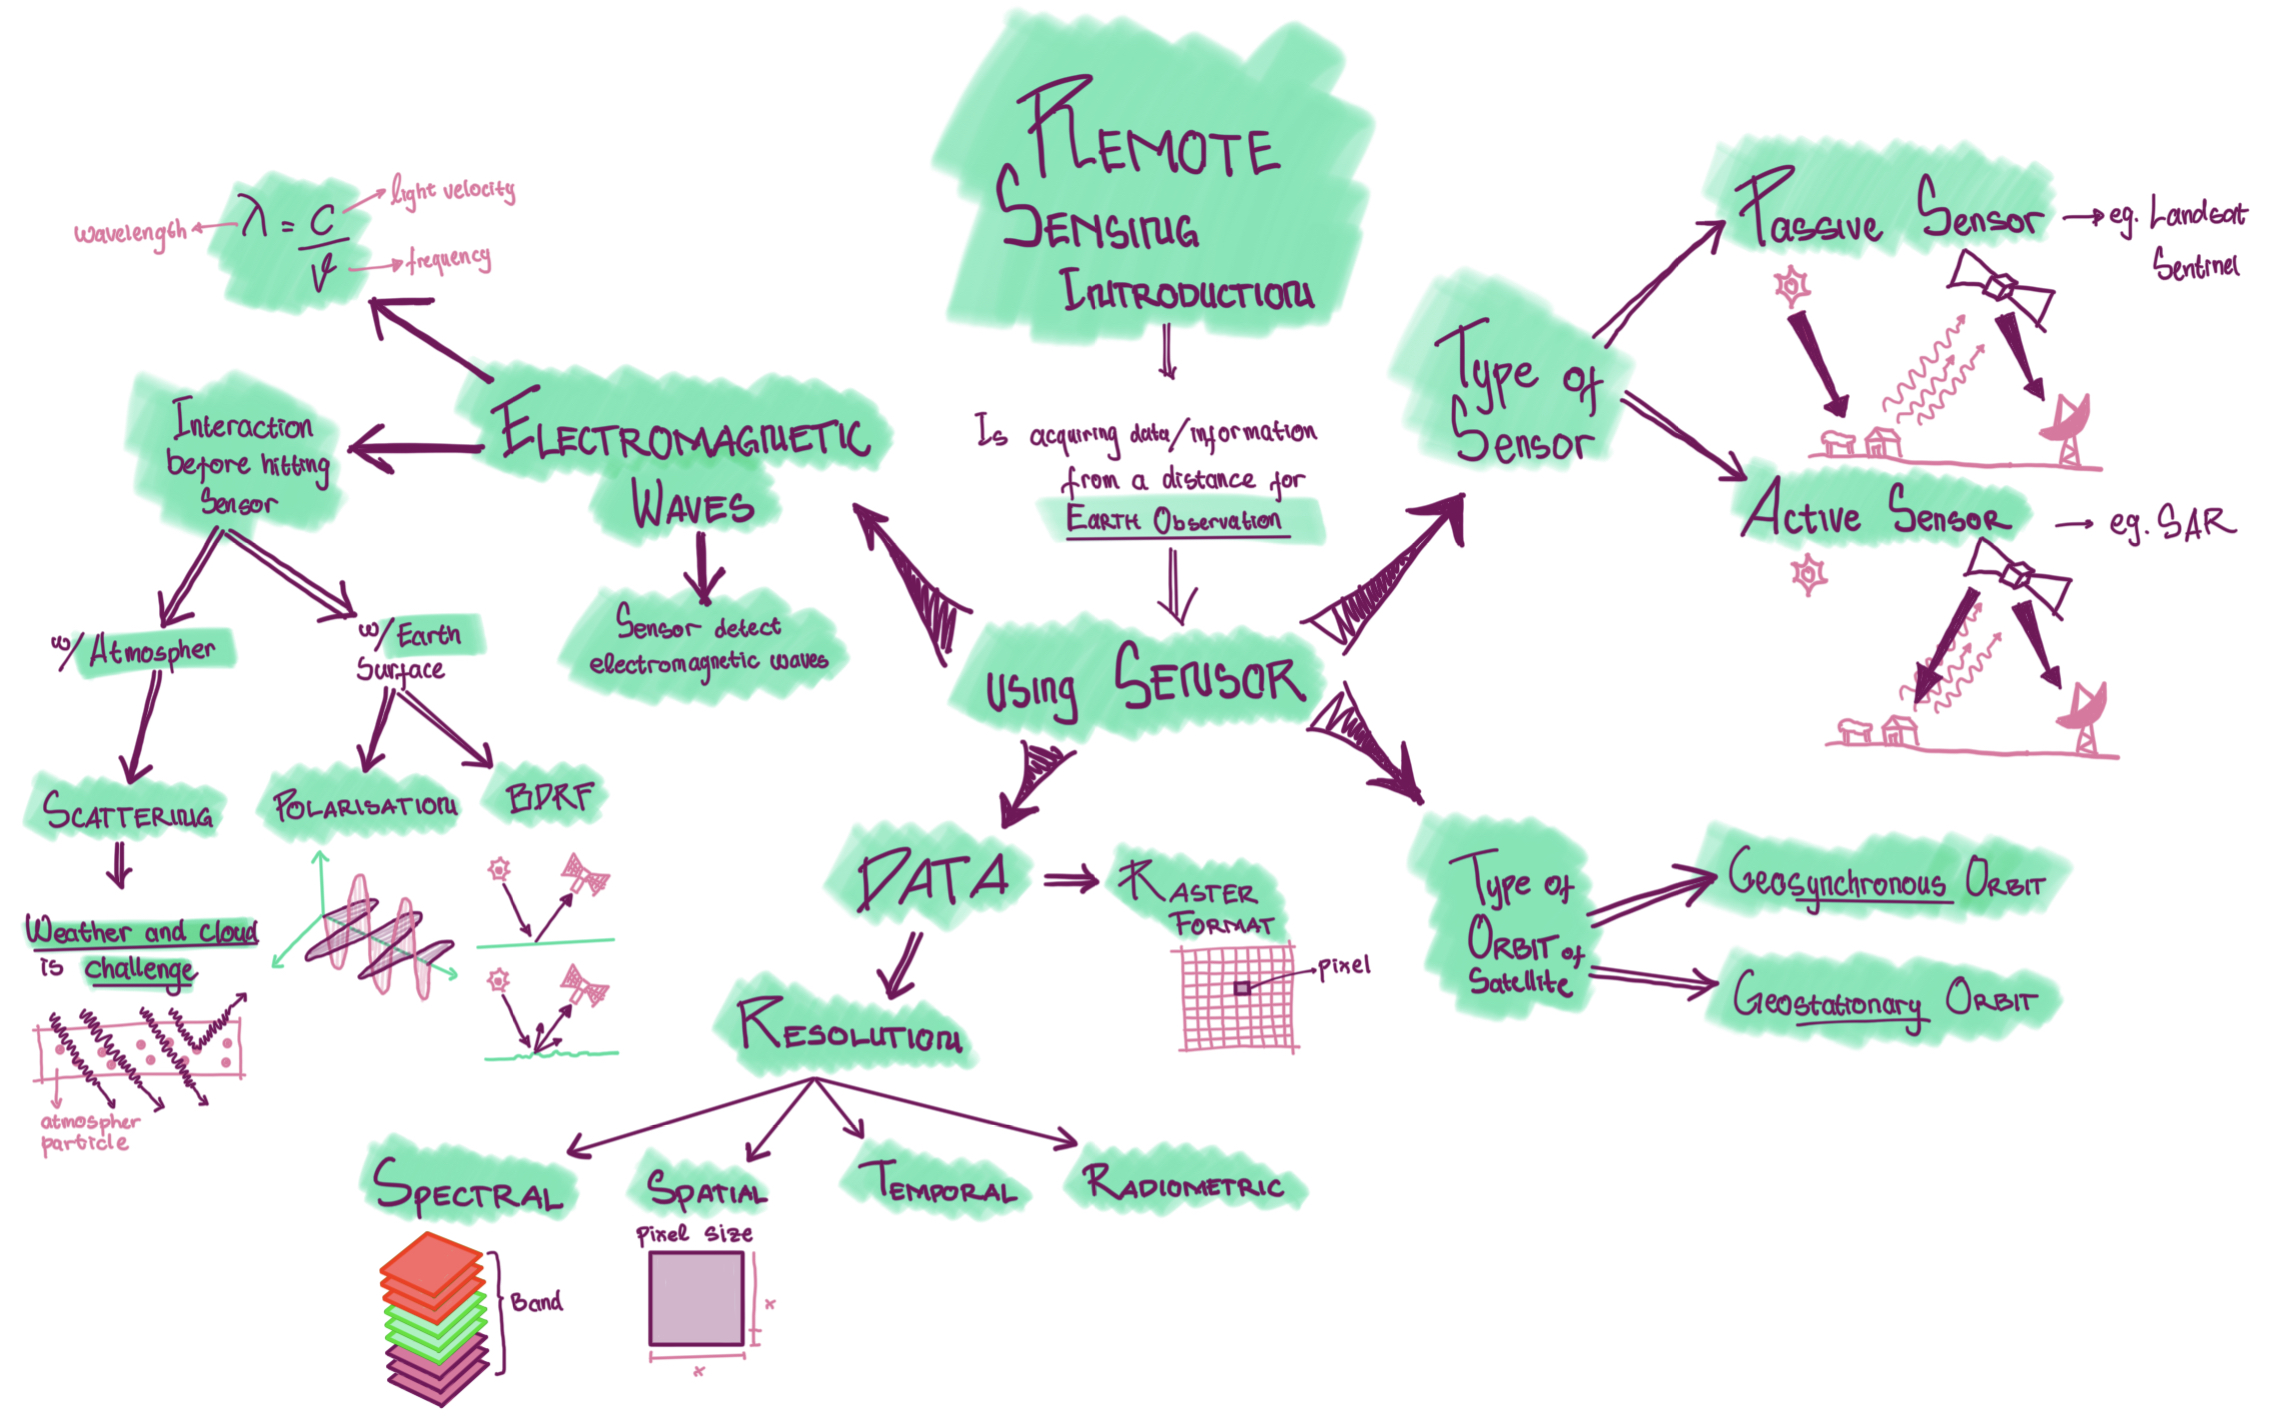 REMOTE
SENSING
INTRODUCTION
Is acquiring data/information
from a distance for
EARTH Observation
using SENSOR
ELECTROMAGNETIC
WAVES
λ = c
ν
wavelength
light velocity
frequency
Sensor detect
electromagnetic waves
Interaction
before hitting
Sensor
w/Atmospher
w/Earth
Surface
SCATTERING
POLARISATION
BDRF
Weather and cloud
is challenge
atmospher
particle
Type of
Sensor
PASSIVE SENSOR
eg. Landsat
Sentinel
ACTIVE SENSOR
eg. SAR
Type of
ORBIT of
Satellite
GEOSYNCHRONOUS ORBIT
GEOSTATIONARY ORBIT
DATA
RASTER
FORMAT
pixel
RESOLUTION
SPECTRAL
Band
SPATIAL
Pixel size
x
x
TEMPORAL
RADIOMETRIC